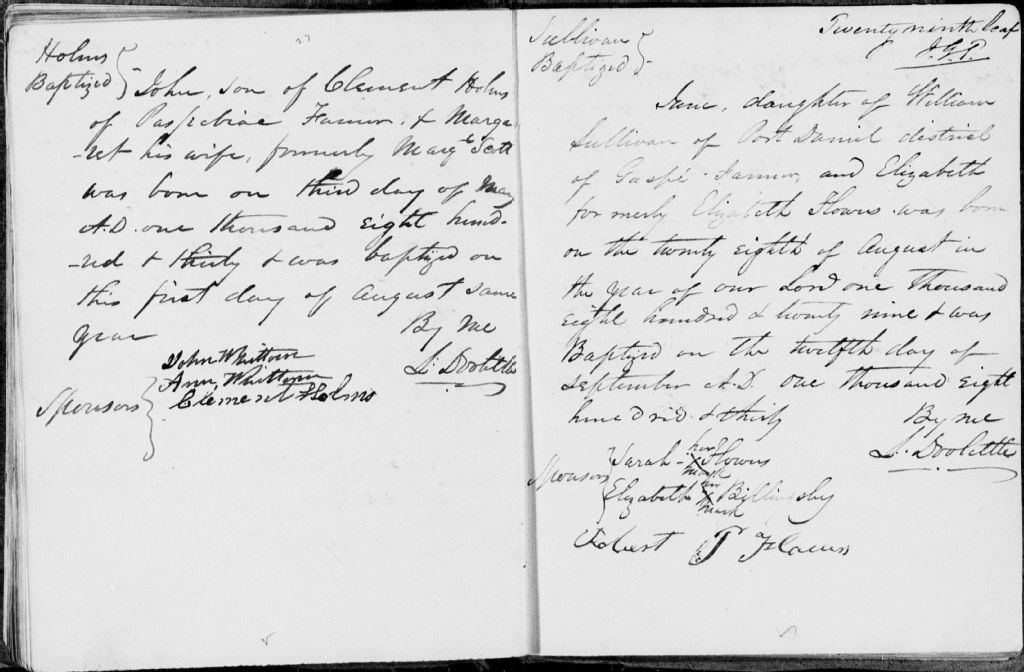 Holms
Baptized
John, son of Clement Holms
of Paspebiac Farmer, & Marga-
-ret his wife, formerly Margt Scott
was born on third day of May
A.D. one thousand eight hund-
-red & thirty & was baptized on
this first day of August same
year
By me
L. Doolittle
Sponsors
John Whittom
Ann Whittom
Clement Holms
Twenty ninth leaf
J.G.T.
Sullivan
Baptized
Jane, daughter of William
Sullivan of Port Daniel district
of Gaspé Farmer, and Elizabeth
formerly Elizabeth Flowers was born
on the twenty eighth of August in
the year of our Lord one thousand
eight hundred & twenty nine & was
Baptized on the twelfth day of
September A.D. one thousand eight
hundrid & thirty
By me
L. Doolittle
Sponsors
Sarah her x mark Flowers
Elizabeth her x mark Billingsby
Robert P Flowers